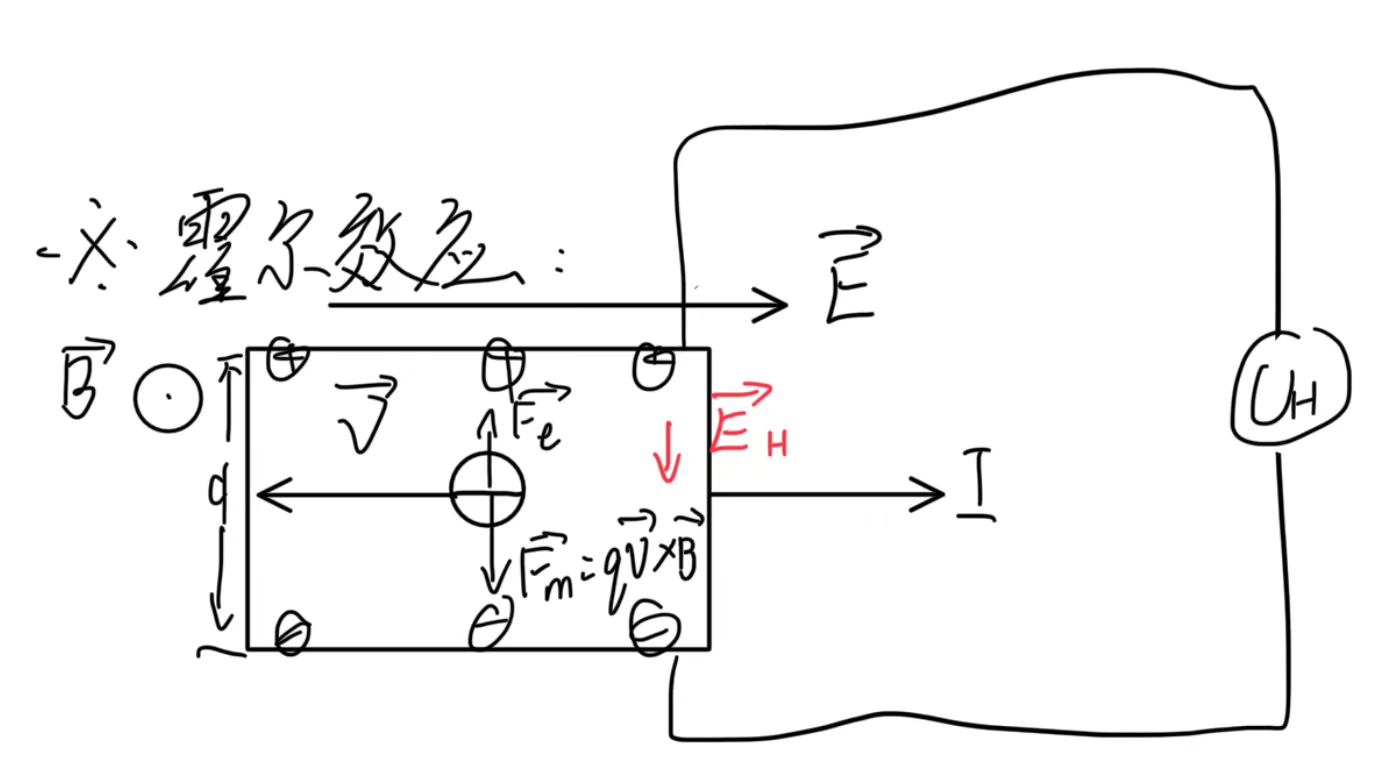 ※霍尔效应:
E
B
V
Fe
EH
UH
d
I
Fm=qV×B